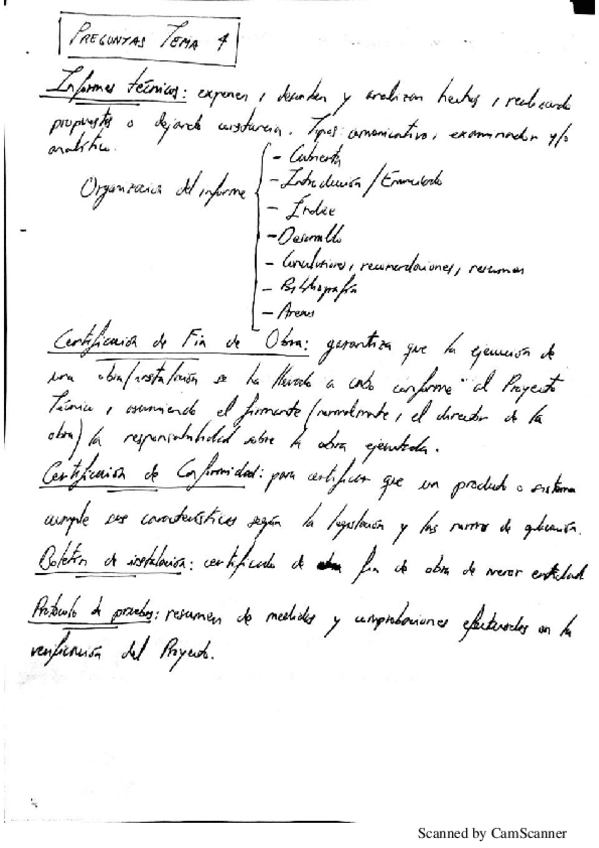 PREGUNTAS TEMA 4
Informes técnicos: exponen, describen y analizan hechos, realizando
propuestas o dejando constancia. Tipos: comunicativo, examinador y/o
analítico.
Organización del informe
- Cubierta
- Introducción / Enunciado
- Índice
- Desarrollo
- Conclusiones, recomendaciones, resumen
- Bibliografía
- Anexos
Certificación de Fin de Obra: garantiza que la ejecución de
una obra/instalación se ha llevado a cabo conforme al Proyecto
Técnico, asumiendo el firmante (normalmente, el director de la
obra) la responsabilidad sobre la obra ejecutada.
Certificación de Conformidad: para certificar que un producto o sistema
cumple sus características según la legislación y las normas de aplicación.
Boletín de instalación: certificado de fin de obra de menor entidad
Protocolo de pruebas: resumen de medidas y comprobaciones efectuadas en la
verificación del Proyecto.
Scanned by CamScanner